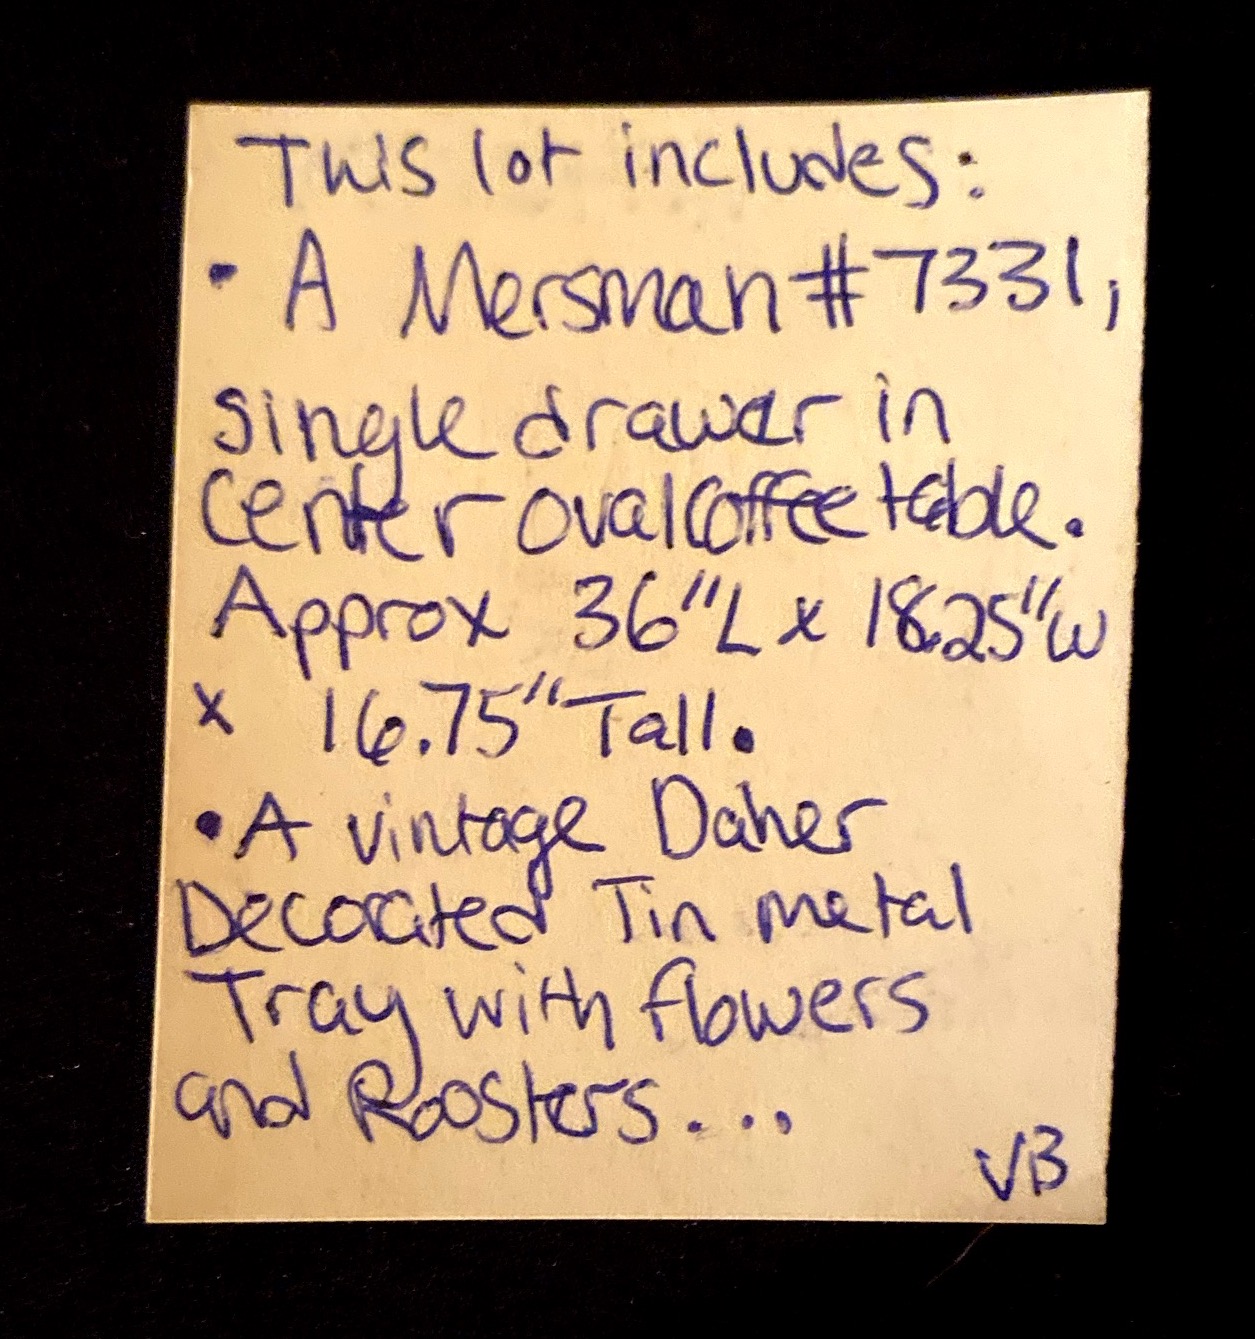 This lot includes:
• A Mersman #7331,
single drawer in
center oval coffee table.
Approx 36"L x 18.25"W
x 16.75" Tall.
• A vintage Daher
Decorated Tin metal
Tray with flowers
and Roosters...
VB